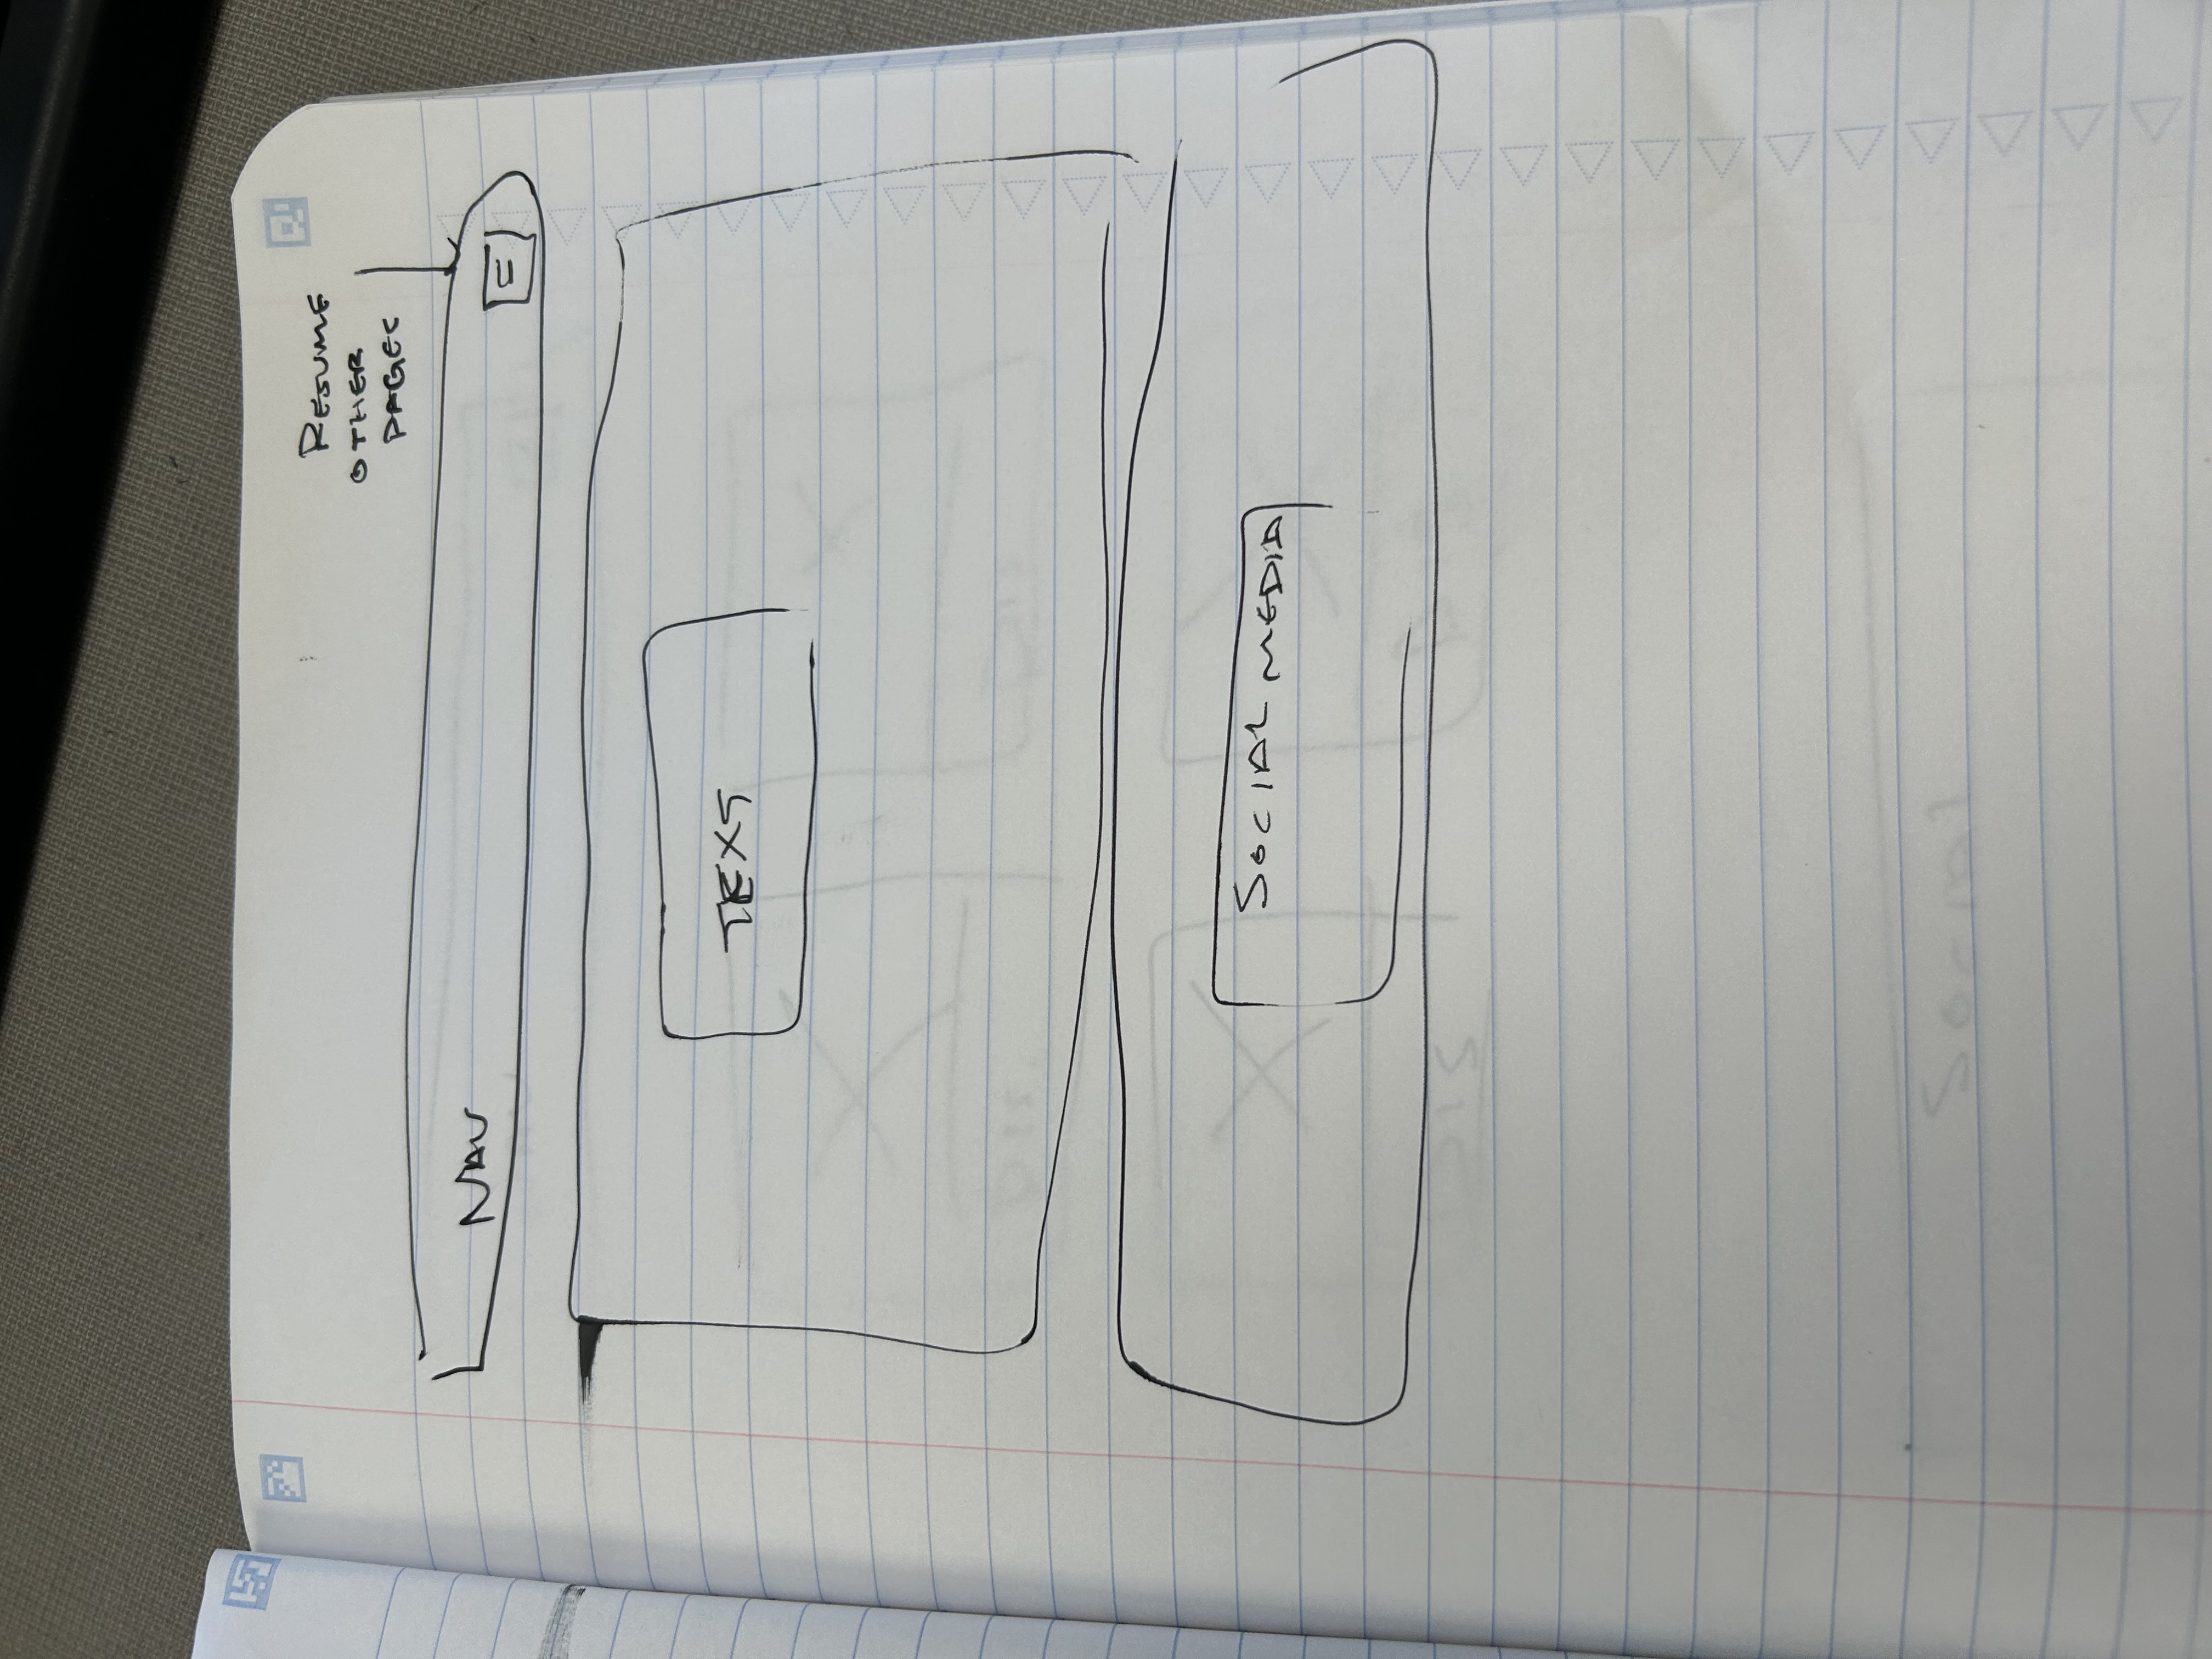 RESUME
OTHER
PAGES
NAV
TEXT
SOCIAL MEDIA
Social